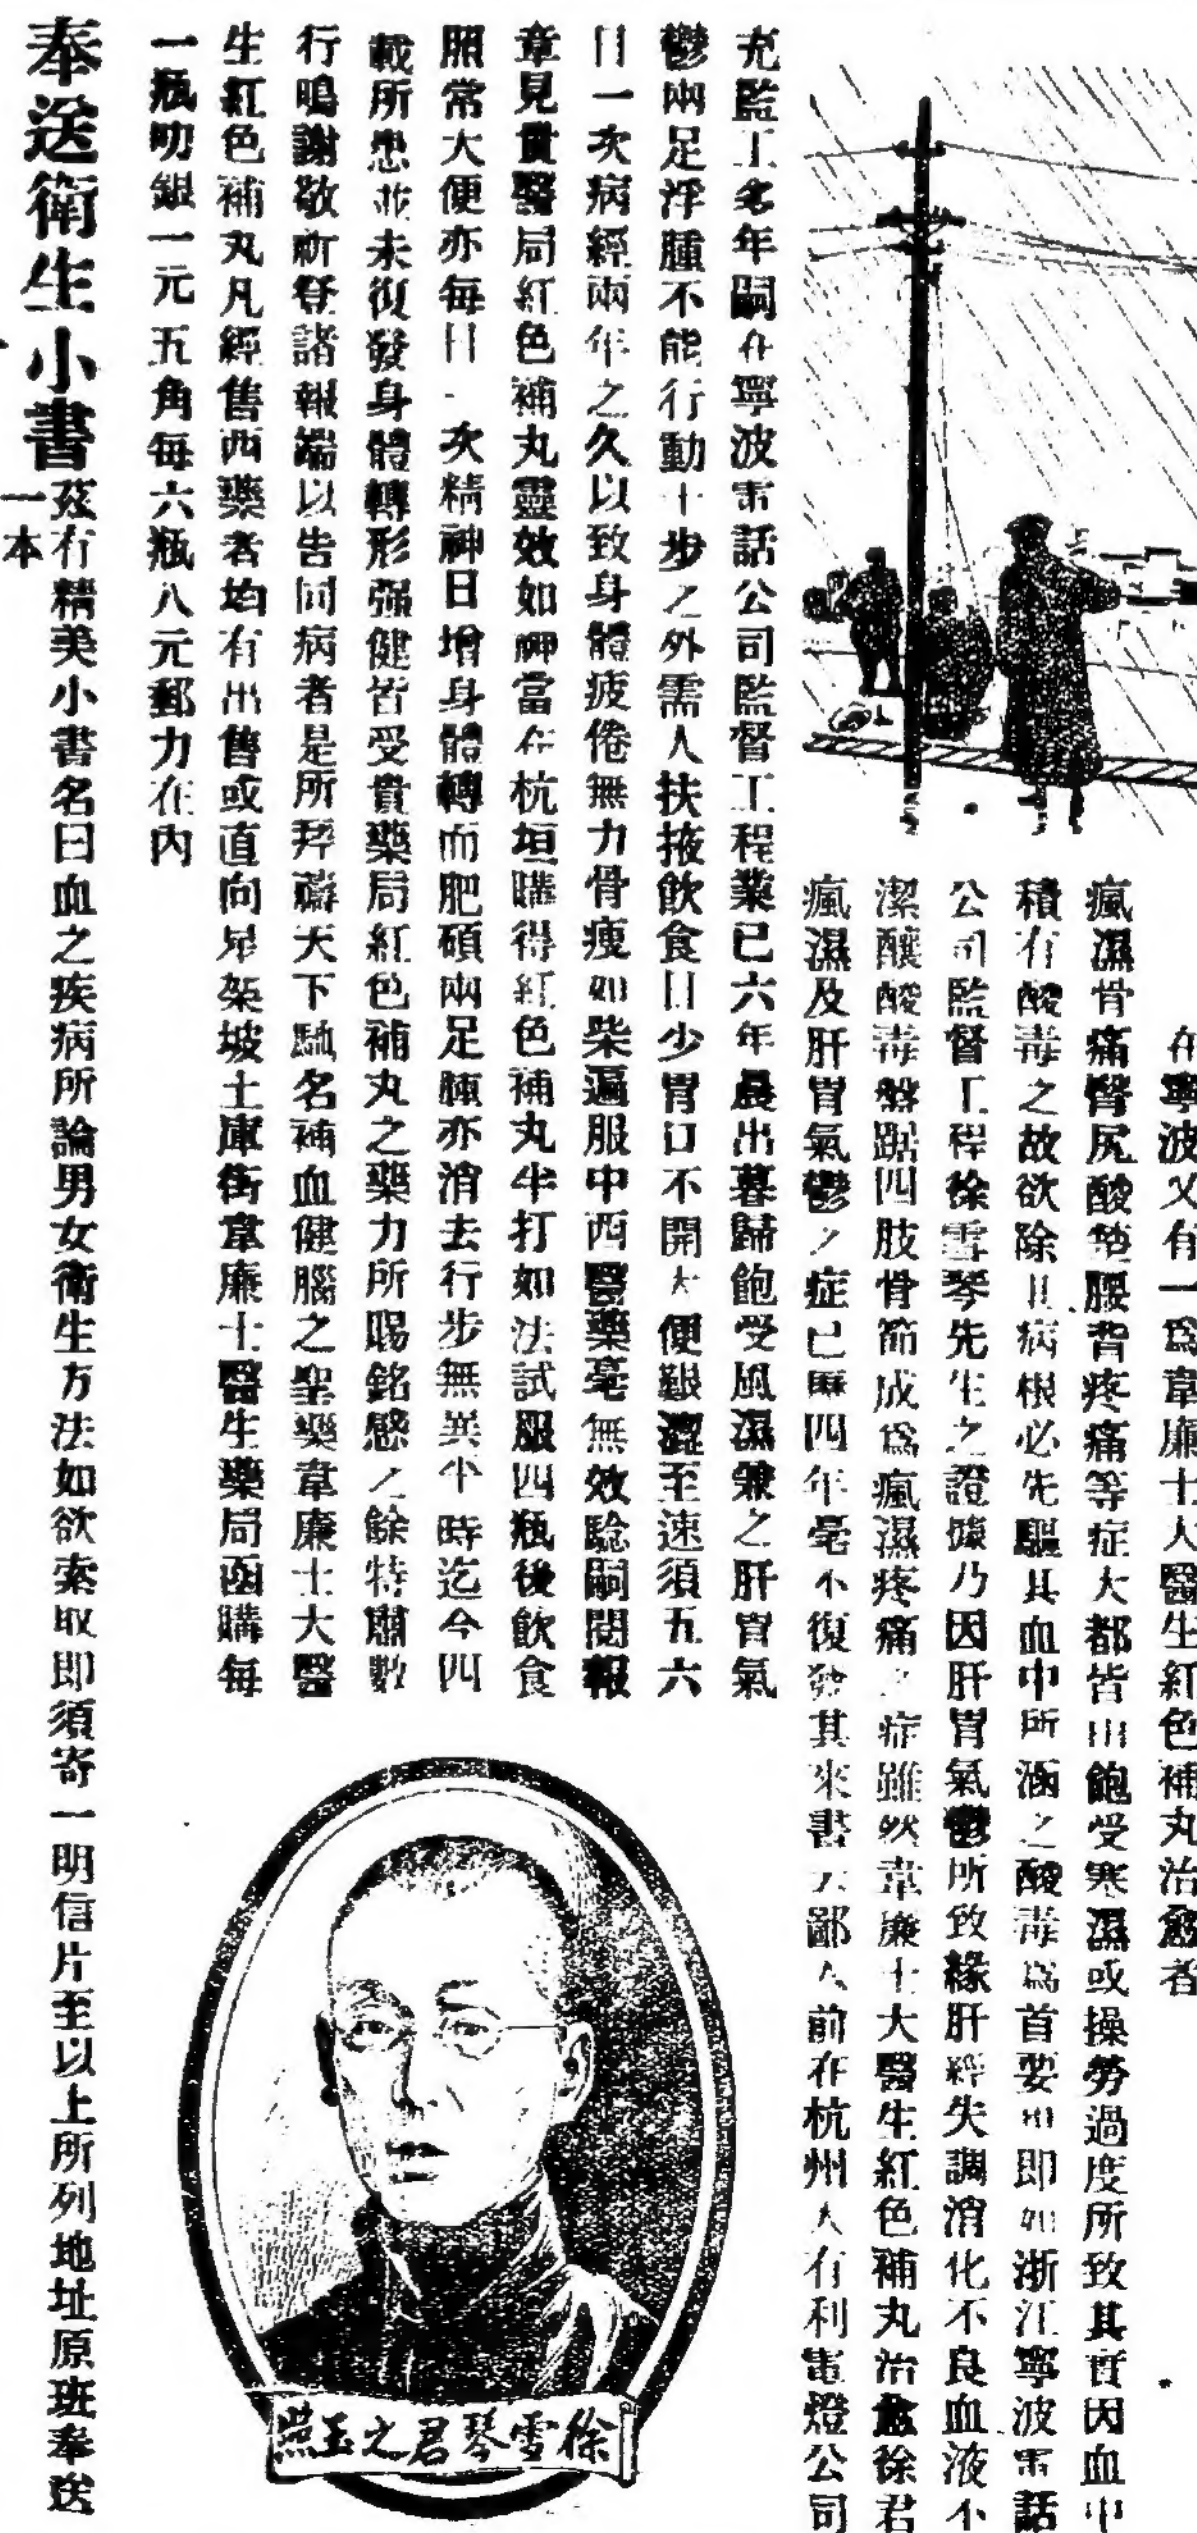 在寧波又有一爲韋廉士大醫生紅色補丸治愈者
瘋濕骨痛臀尻酸楚腰背疼痛等症大都皆由飽受寒濕或操勞過度所致其實因血中
積有酸毒之故欲除其病根必先驅其血中所涵之酸毒爲首要也即如浙江寧波電話
公司監督工程徐雪琴先生之證據乃因肝胃氣鬱所致緣肝經失調消化不良血液不
潔釀酸毒盤踞四肢骨節成爲瘋濕疼痛之症雖然韋廉士大醫生紅色補丸治愈徐君
瘋濕及肝胃氣鬱之症已歷四年毫不復發其來書云鄙人前在杭州大有利電燈公司
充監工多年嗣在寧波電話公司監督工程業已六年晨出暮歸飽受風濕兼之肝胃氣
鬱兩足浮腫不能行動十步之外需人扶掖飲食日少胃口不開大便艱澀至速須五六
日一次病經兩年之久以致身體疲倦無力骨瘦如柴遍服中西醫藥毫無效驗嗣閱報
章見貴醫局紅色補丸靈效如神當在杭垣購得紅色補丸半打如法試服四瓶後飲食
照常大便亦每日一次精神日增身體轉而肥碩兩足腫亦消去行步無異平時迄今四
載所患並未復發身體轉形强健皆受貴藥局紅色補丸之藥力所賜銘感之餘特關數
行鳴謝敬祈登諸報端以告同病者是所拜禱天下馳名補血健腦之聖藥韋廉士大醫
生紅色補丸凡經售西藥者均有出售或直向星架坡土庫街韋廉士醫生藥局函購每
一瓶叻銀一元五角每六瓶八元郵力在內
徐雪琴君之玉照
奉送衛生小書一本
茲有精美小書名曰血之疾病所論男女衛生方法如欲索取即須寄一明信片至以上所列地址原班奉送